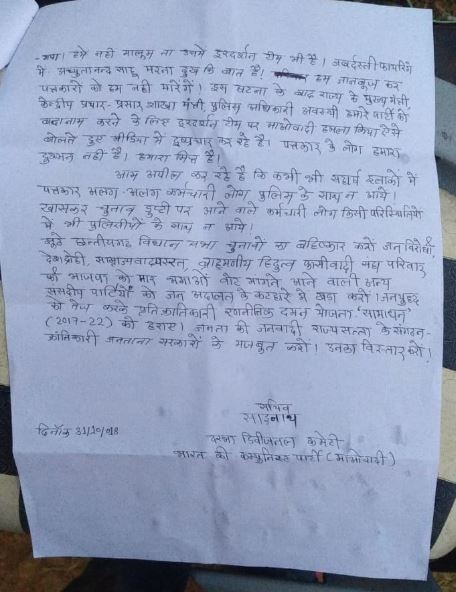 गया। हमें नहीं मालूम था उसमें दूरदर्शन टीम भी है। जबर्दस्ती फायरिंग
में अच्युतानन्द साहू मरना दुख कि बात है। हम जानबूज कर
पत्रकारों को हम नहीं मारेंगे। इस घटना के बाद राज्य के मुख्य मंत्री
केन्द्रीय प्रचार-प्रसार शाखा मंत्री पुलिस अधिकारी अवस्थी हमारे पार्टी को
बदानाम करने के लिए दूरदर्शन टीम पर माओवादी हमला किया ऐसे
बोलते हुए मीडिया में दुष्प्रचार कर रहे है। पत्रकार के लोग हमारा
दुश्मन नहीं है। हमारा मित्र है।
आम अपील कर रहे है कि कभी भी संघर्ष इलाकों में
पत्रकार अलग-अलग कर्मचारी लोग पुलिस के साथ न आयें।
खासकर चुनाव ड्युटी पर आने वाले कर्मचारी लोग किसी परिस्थितियों
में भी पुलिसीयों के साथ न आयें।
झूठे छत्तीसगढ़ विधान सभा चुनावों का बहिष्कार करों जन विरोधी,
देशद्रोही, साम्राज्यवादपरस्त, ब्राह्मणीय हिंदुत्व फासीवादी संघ परिवार
की भाजपा को मार भगाओं वोट मांगने आने वाली अन्य
संसदीय पार्टियों को जन अदालत के कटहारे में खड़ा करों। जनयुद्ध
को तेज करके प्रतिक्रांतिकारी रणनीतिक दमन योजना 'सामाधान'
(2017-22) को हराए। जनता की जनवादी राज्यसत्ता के संगठन-
क्रांतिकारी जनताना सरकारों के मजबुत करों। उनका विस्तार करों!
सचिव
साइनाथ
दिनाँक 31/10/018
दरभा डिवीजनल कमेटी
भारत की कम्युनिस्ट पार्टी (माओवादी)